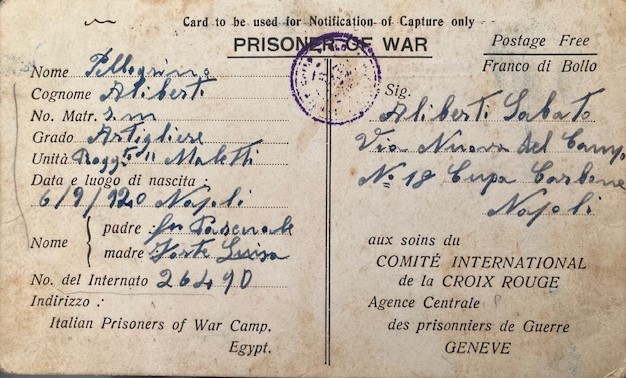 Card to be used for Notification of Capture only
PRISONER OF WAR
Postage Free
Franco di Bollo
Nome Pellegrino
Cognome Aliberti
No. Matr. s. m
Grado Artigliere
Unità Ragg to Maletti
Data e luogo di nascita :
6/9/920 Napoli
Nome
padre fu Pasquale
madre Forte Luisa
No. del Internato 26490
Indirizzo :
Italian Prisoners of War Camp.
Egypt.
Sig.
Aliberti Sabato
Via Nuova del Campo
No 18 Cupa Carbone
Napoli
aux soins du
COMITÉ INTERNATIONAL
de la CROIX ROUGE
Agence Centrale
des prisonniers de Guerre
GENEVE